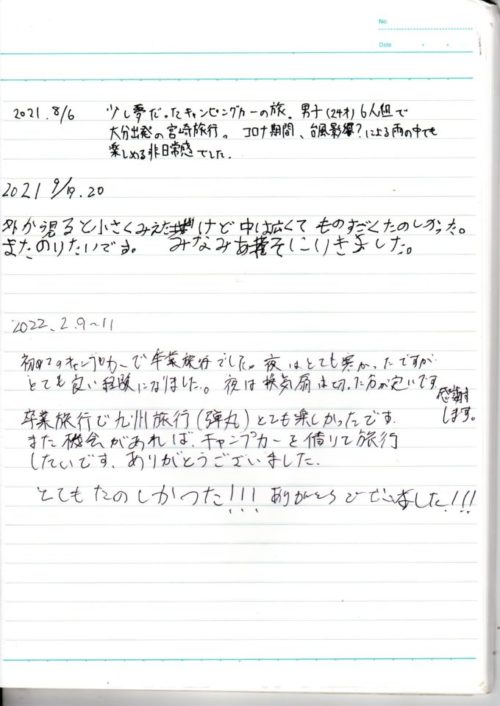 No.
Date
2021.8/6 少し夢だったキャンピングカーの旅。男子(24才)6人組で
大分出発の宮崎旅行。コロナ期間、台風影響?による雨の中でも
楽しめる非日常感でした。
2021 9/19.20
外から見ると小さくみえたけど中は広くてものすごくたのしかった。
またのりたいです。 みなみあそにいきました。
2022.2.9〜11
初めてのキャンプカーで卒業旅行でした。夜はとても寒かったですが
とても良い経験になりました。夜は換気扇は切った方が良いです
感謝
します。
卒業旅行で九州旅行(弾丸)とても楽しかったです。
また機会があれば、キャンプカーを借りて旅行
したいです、ありがとうございました。
とてもたのしかった!!! ありがとうございました!!!